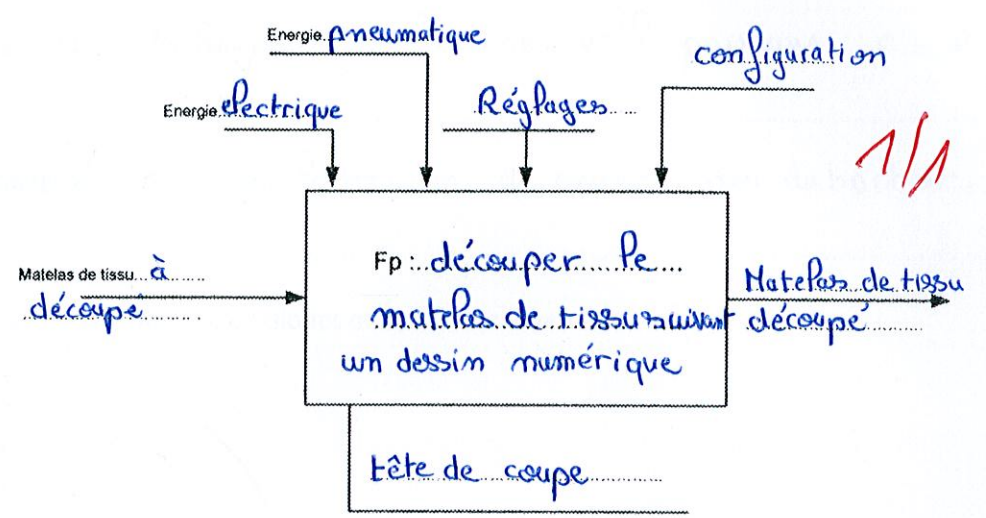 Energie pneumatique
configuration
Energie electrique
Réglages
1/1
Matelas de tissu à
découpé
Fp : découper le
matelas de tissu suivant
un dessin numérique
Matelas de tissu
découpé
tête de coupe